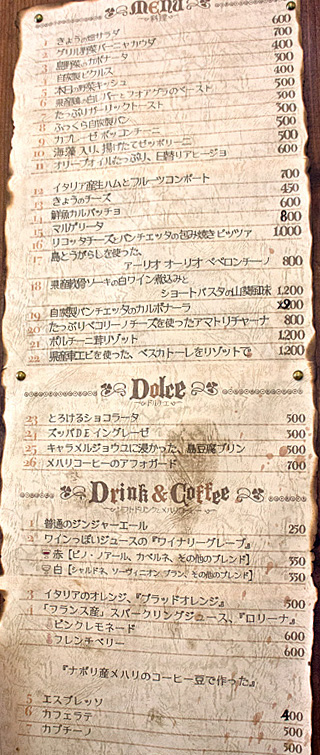 MENU
~料理~
1 きょうの畑サラダ 600
2 グリル野菜バーニャカウダ 700
3 島野菜のカポナータ 400
4 自家製ピクルス 300
5 本日の野菜キッシュ 400
6 県産鶏の白レバーとフォアグラのペースト 500
7 たっぷりガーリックトースト 300
8 ふっくら自家製パン 300
9 カプレーゼ ボッコンチーニ 500
10 海藻入り、揚げたてゼッポリーニ 500
11 オリーブオイルたっぷり、日替りアヒージョ 600
12 イタリア産生ハムとフルーツコンポート 700
13 きょうのチーズ 450
14 鮮魚カルパッチョ 600
15 マルゲリータ 800
16 リコッタチーズとパンチェッタの包み焼きピッツァ 1,000
17 島とうがらしを使った、
アーリオ オーリオ ペペロンチーノ 800
18 県産軟骨ソーキの白ワイン煮込みと
ショートパスタの山葵風味 1,200
19 自家製パンチェッタのカルボナーラ
20 たっぷりペコリーノチーズを使ったアマトリチャーナ 800
21 ポルチーニ茸リゾット 1,200
22 県産車エビを使った、ペスカトーレをリゾットで 1,200
Dolce
~ドルチェ~
23 とろけるショコラータ 500
24 ズッパDEイングレーゼ 500
25 キャラメルジョウユに浸かった、島豆腐プリン 500
26 メハリコーヒーのアフォガード 700
Drink & Coffee
~ソフトドリンクとメハリコーヒー~
1 普通のジンジャーエール 250
2 ワインっぽいジュースの『ワイナリーグレープ』
赤 [ピノ・ノアール、カベルネ、その他のブレンド] 350
白 [シャルドネ、ソーヴィニオン ブラン、その他のブレンド] 350
3 イタリアのオレンジ、『ブラッドオレンジ』 500
4 「フランス産」スパークリングジュース、『ロリーナ』
ピンクレモネード 600
フレンチベリー 600
『ナポリ産メハリのコーヒー豆で作った』
5 エスプレッソ 400
6 カフェラテ 500
7 カプチーノ 500